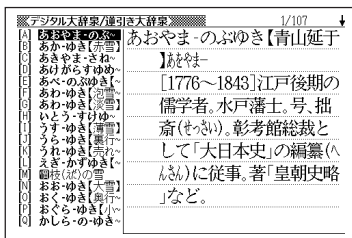 デジタル大辞泉/逆引き大辞泉
1/107
[A] あおやま-のぶ~
[B] あか-ゆき【赤雪】
[C] あきやま-さね~
[D] あけがらすゆめ~
[E] あべ-のぶゆき【~
[F] あわ-ゆき【泡雪】
[G] あわ-ゆき【淡雪】
[H] いとう-すけゆ~
[I] うす-ゆき【薄雪】
[J] うら-ゆき【裏行~
[K] うれ-ゆき【売れ~
[L] えぎ-かずゆき【~
[M] 枝(えだ)の雪
[N] おお-ゆき【大雪】
[O] おく-ゆき【奥行~
[P] おぐら-ゆき【小~
[Q] かしら-の-ゆき~
あおやま-のぶゆき【青山延于
】あをやま─
[1776～1843]江戸後期の
儒学者。水戸藩士。号、拙
斎(せっさい)。彰考館総裁と
して「大日本史」の編纂(へ
んさん)に従事。著「皇朝史略
」など。